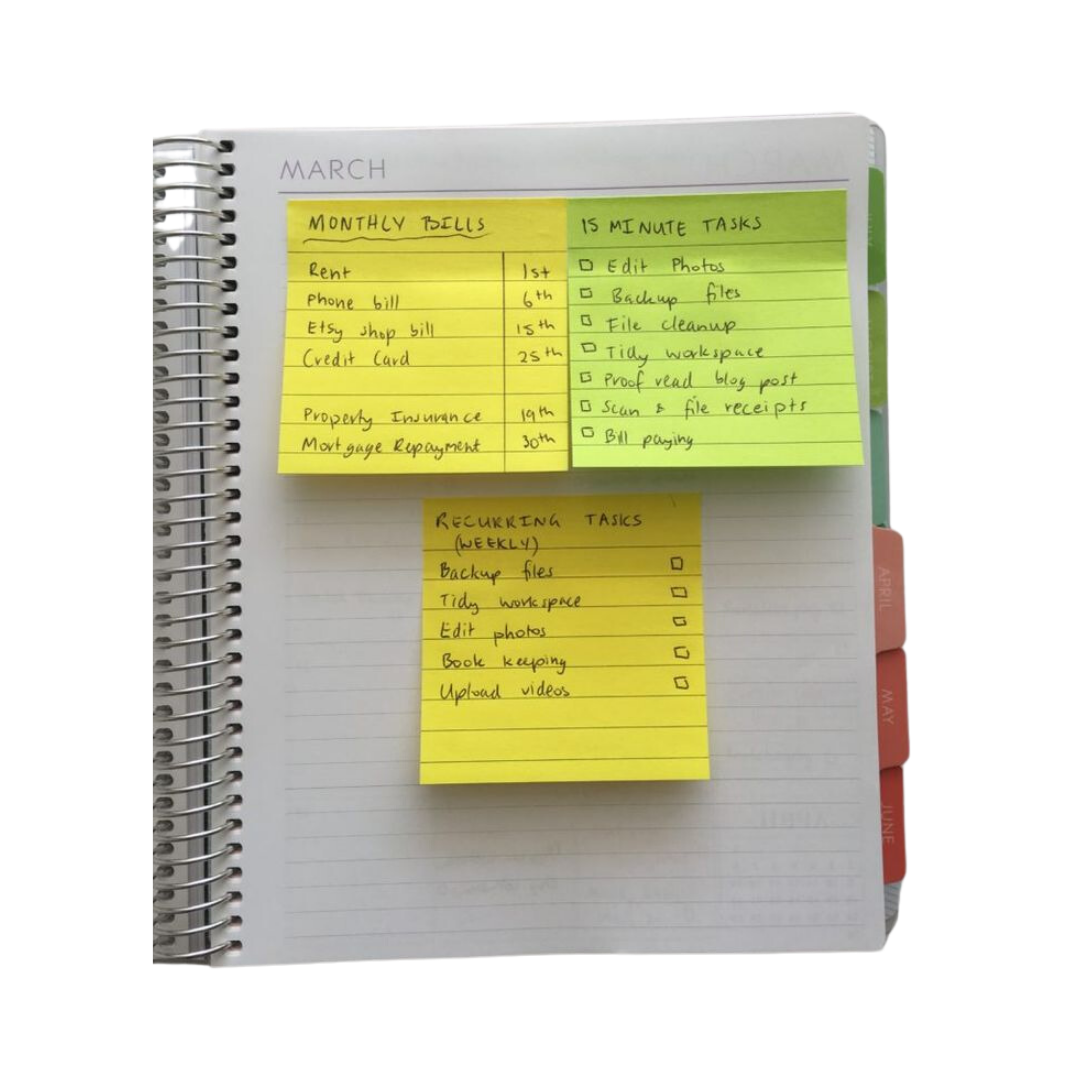 MARCH
MONTHLY BILLS
Rent 1st
Phone bill 6th
Etsy shop bill 15th
Credit Card 25th
Property Insurance 19th
Mortgage Repayment 30th
15 MINUTE TASKS
Edit Photos
Backup files
File cleanup
Tidy workspace
Proof read blog post
Scan & file receipts
Bill paying
RECURRING TASKS
(WEEKLY)
Backup files
Tidy workspace
Edit photos
Book keeping
Upload videos
APRIL
MAY
JUNE